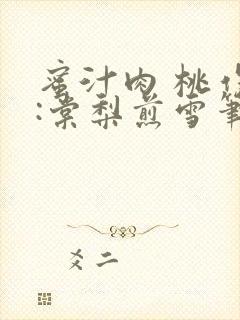 蜜汁肉桃作
:棠梨煎雪筆
爻二